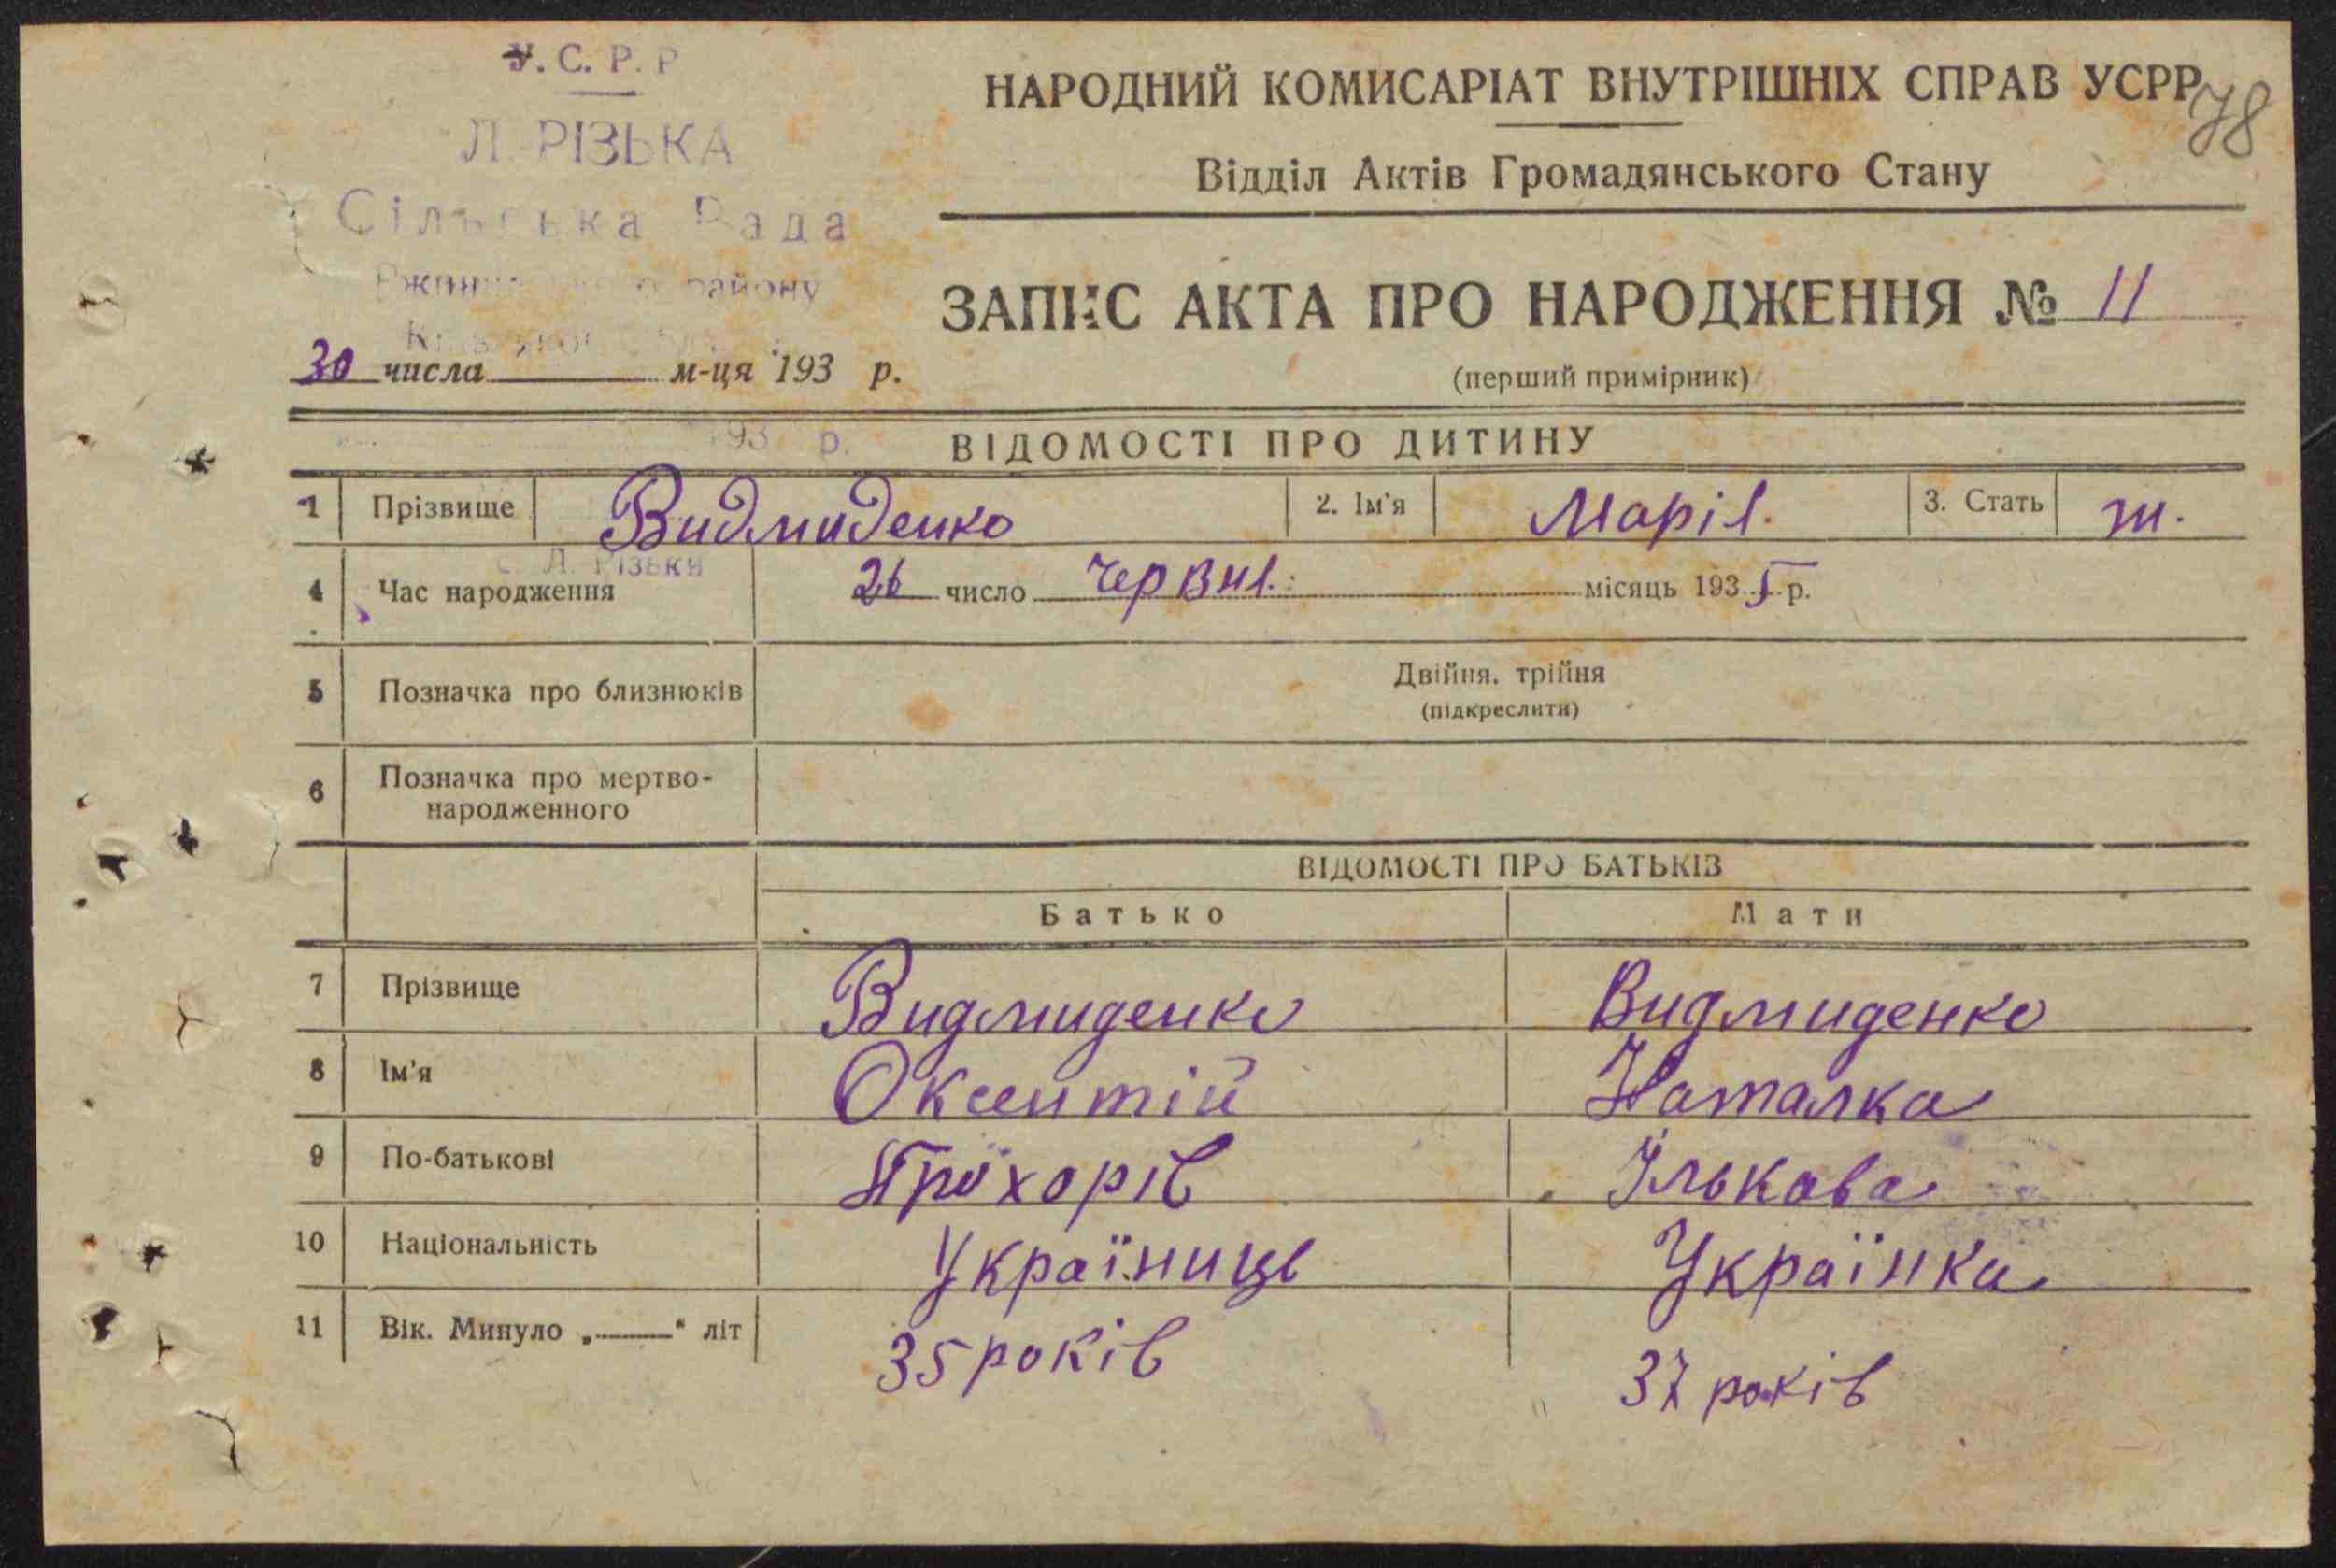 У. С. Р. Р
Л. РІЗЬКА
Сільська Рада
району
НАРОДНИЙ КОМИСАРІАТ ВНУТРІШНІХ СПРАВ УСРР
78
Відділ Актів Громадянського Стану
ЗАПИС АКТА ПРО НАРОДЖЕННЯ № 11
(перший примірник)
30 числа м-ця 193 р.
193 р.
ВІДОМОСТІ ПРО ДИТИНУ
1 Прізвище Видмиденко 2. Ім'я Марія. 3. Стать ж.
с. Л. Різьки
4 Час народження 26 число червня. місяць 1935 р.
5 Позначка про близнюків Двійня, трійня
(підкреслити)
6 Позначка про мертво-
народженного
ВІДОМОСТІ ПРО БАТЬКІВ
Батько Мати
7 Прізвище Видмиденко Видмиденко
8 Ім'я Оксентій Наталка
9 По-батькові Прохорів Ількова
10 Національність Україниць Українка
11 Вік. Минуло „——“ літ 35 років 37 років